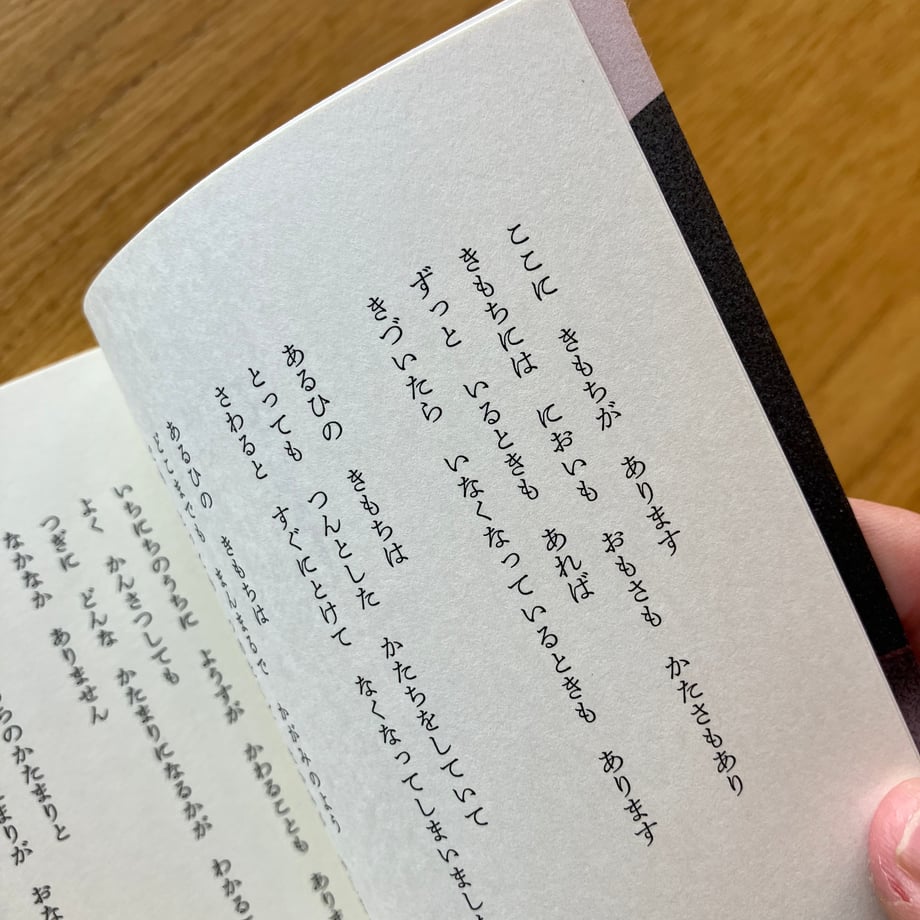 ここに　きもちが　あります
きもちには　においも　おもさも　かたさもあり
ずっと　いるときも　あれば
きづいたら　いなくなっているときも　あります
あるひの　きもちは
とっても　つんとした　かたちをしていて
さわると　すぐにとけて　なくなってしまいまし
あるひの　きもちは
どこまでも　まんまるで　かがみのよう
いちにちのうちに　ようすが　かわることも　あり
よく　かんさつしても
つぎに　どんな　かたまりになるかが　わかる
なかなか　ありません
のかたまりと
まりが　おな